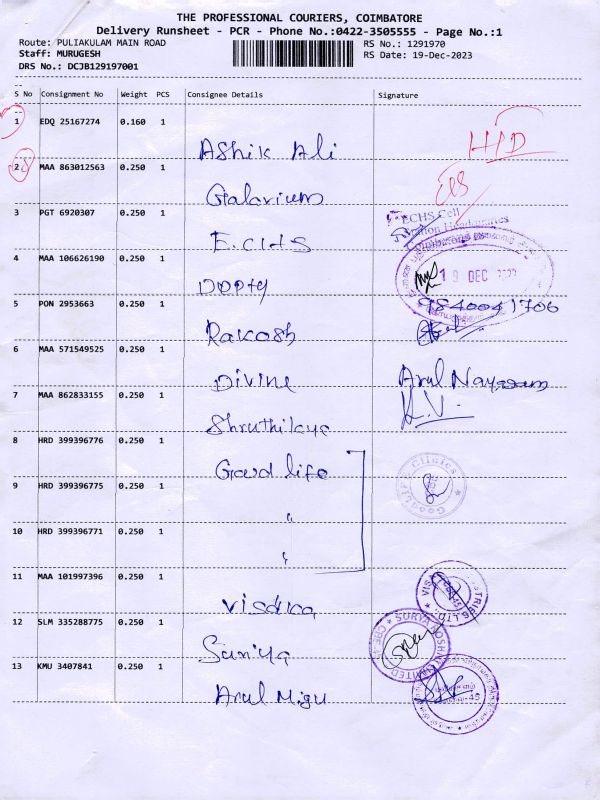 THE PROFESSIONAL COURIERS, COIMBATORE
Delivery Runsheet - PCR - Phone No.:0422-3505555 - Page No.:1
Route: PULIAKULAM MAIN ROAD
RS No.: 1291970
Staff: MURUGESH
RS Date: 19-Dec-2023
DRS No.: DCJB129197001
S No Consignment No Weight PCS Consignee Details Signature
1 EDQ 25167274 0.160 1
Ashik Ali
HD
2 MAA 863012563 0.250 1
Galarium
3 PGT 6920307 0.250 1
E.C.H.S
ECHS Cell
Station Headquarters
4 MAA 106626190 0.250 1
19 DEC
5 PON 2953663 0.250 1
9840041706
Rakosh
6 MAA 571549525 0.250 1
Divine
Arul
7 MAA 862833155 0.250 1
K.V.
Shruthilaya
8 HRD 399396776 0.250 1
Good life
GoodLife Clinics
9 HRD 399396775 0.250 1
"
10 HRD 399396771 0.250 1
"
11 MAA 101997396 0.250 1
12 SLM 335288775 0.250 1
SURYA ROSHNI LIMITED
Suriya
13 KMU 3407841 0.250 1
Arul Migu